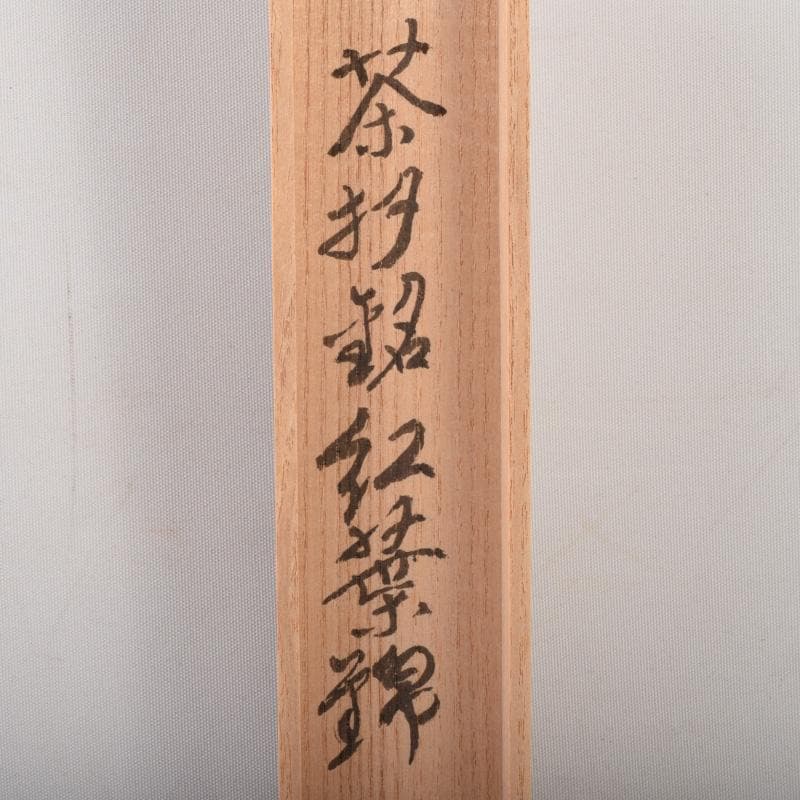 茶杓銘紅葉錦